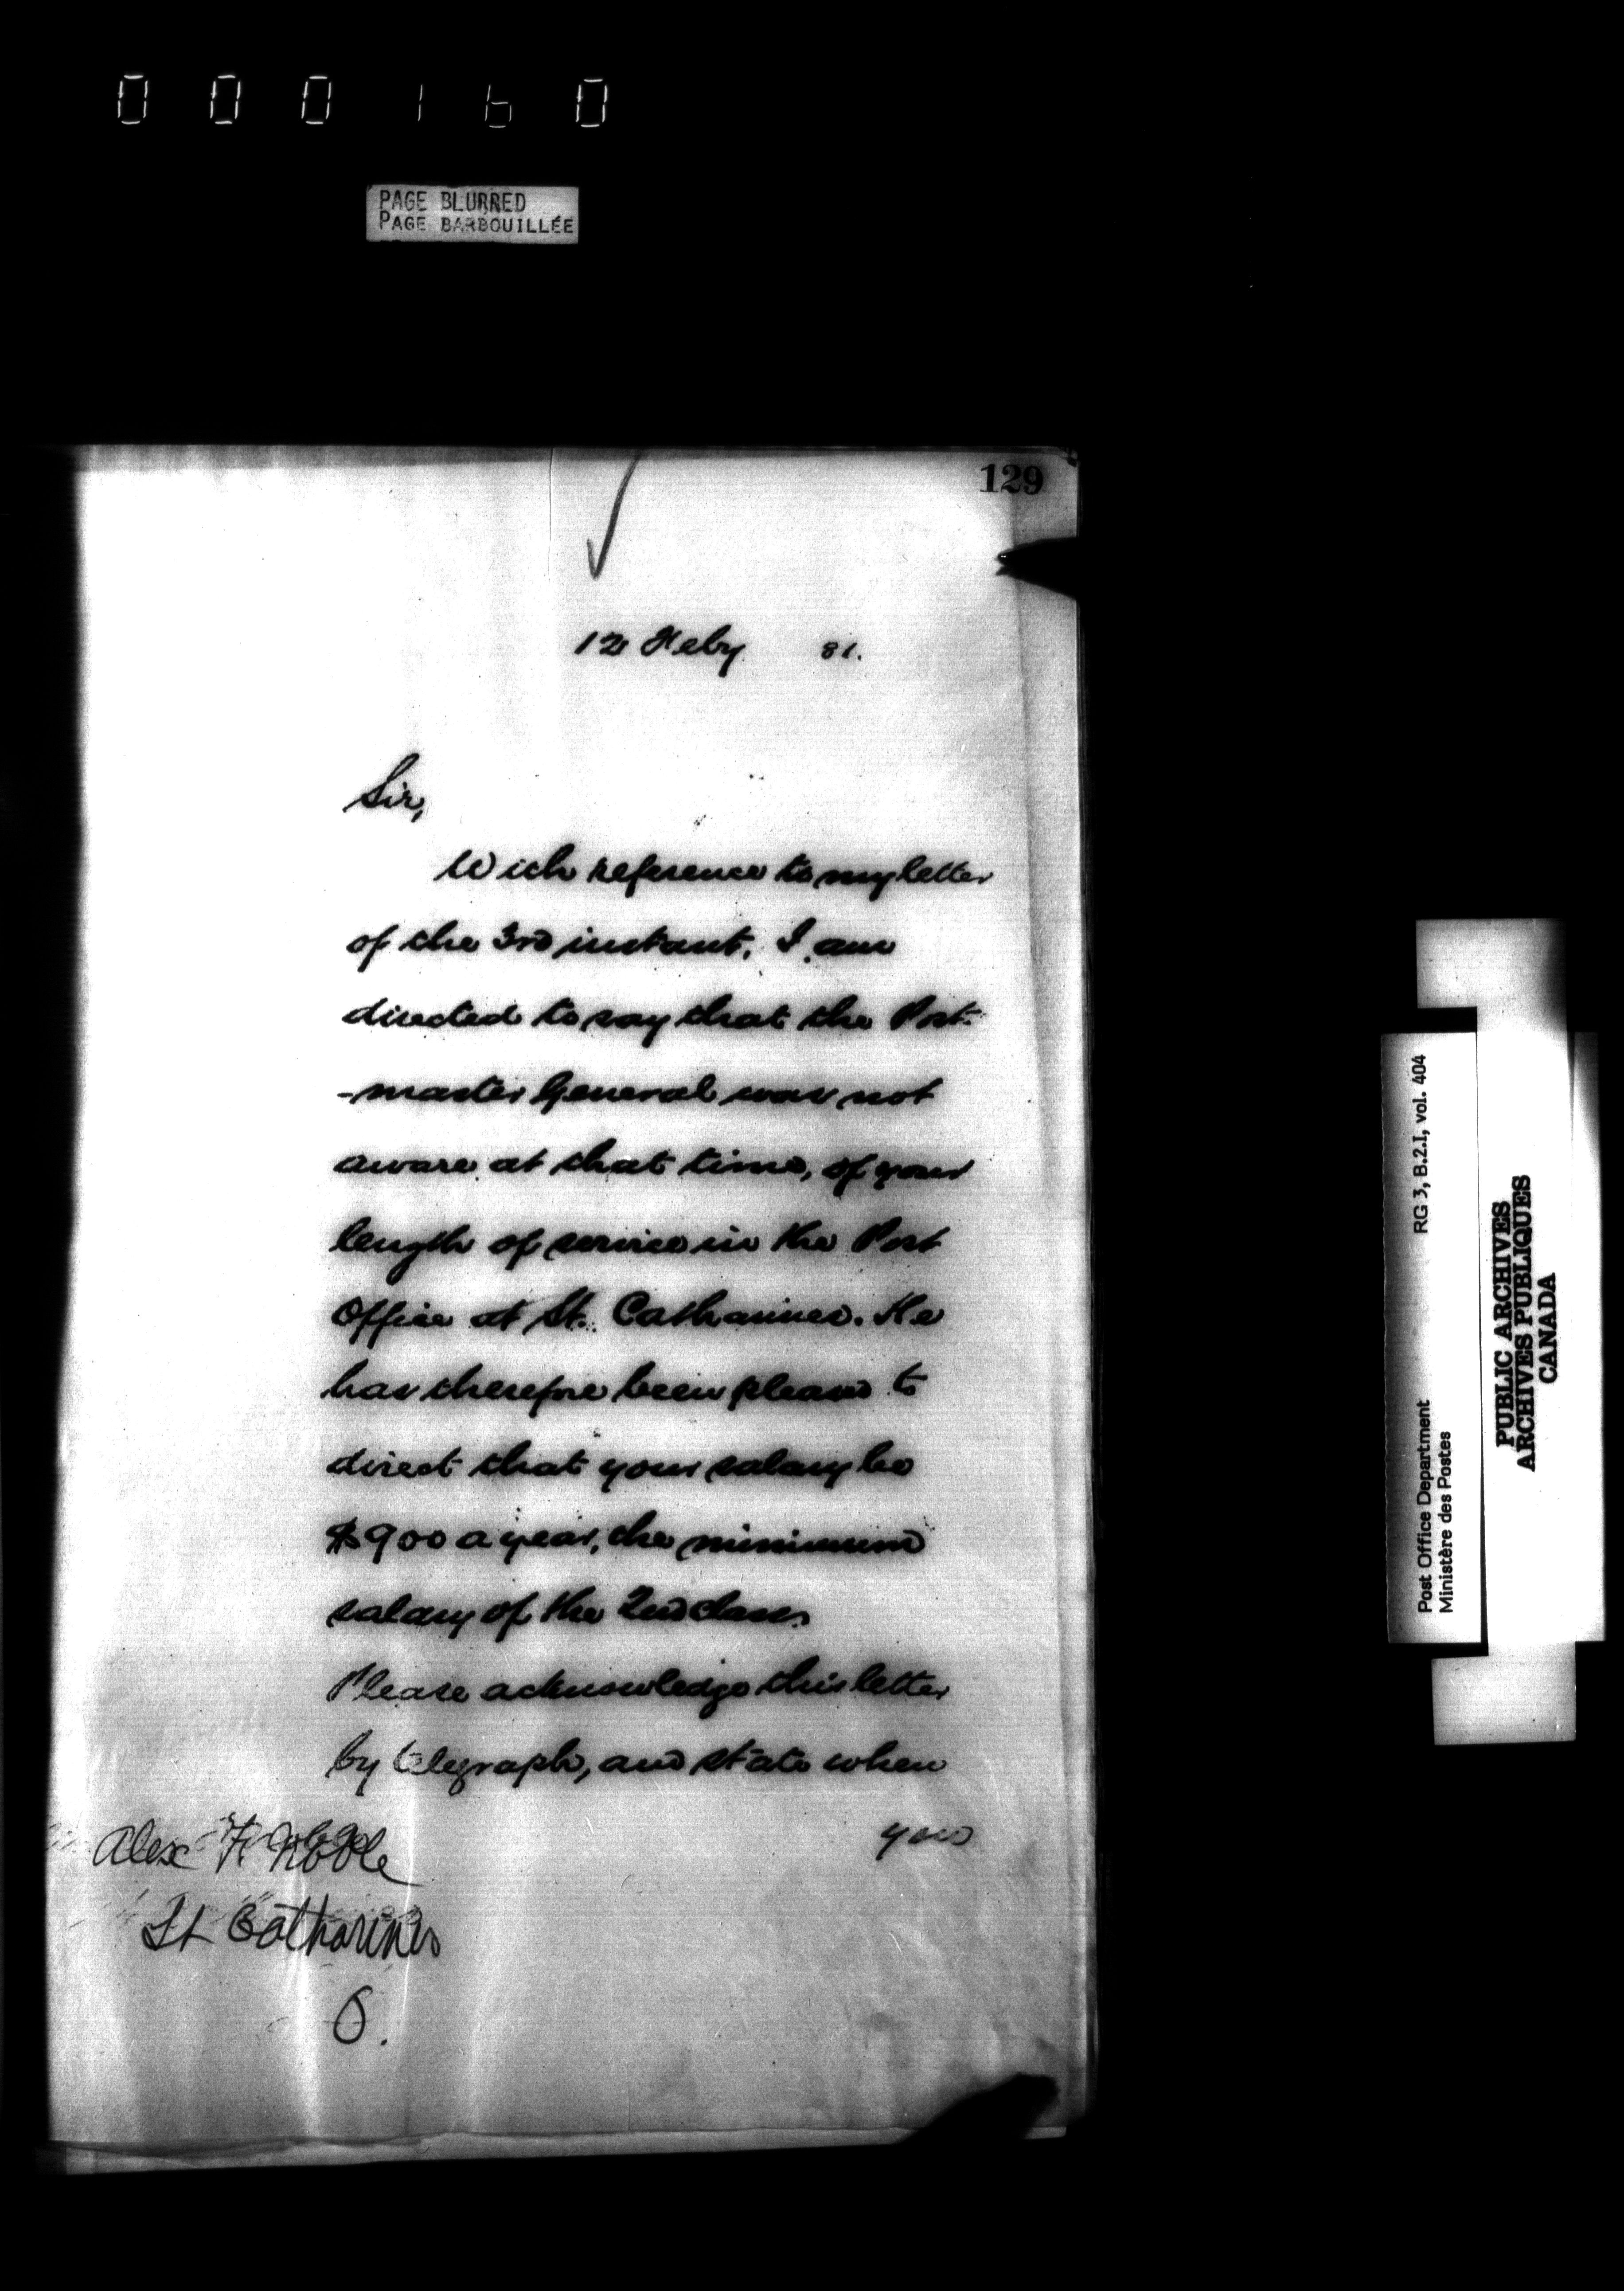 000160
PAGE BLURRED
PAGE BARBOUILLÉE
129
12 Feby 81.
Sir,
With reference to my letter
of the 3rd instant, I am
directed to say that the Post-
-master General was not
aware at that time, of your
length of service in the Post
Office at St. Catharines. He
has therefore been pleased to
direct that your salary be
$900 a year, the minimum
salary of the 2nd class.
Please acknowledge this letter
by telegraph, and state when
you
Alex F.
St Catharines
O.
Post Office Department RG 3, B.2.I, vol. 404
Ministère des Postes
PUBLIC ARCHIVES
ARCHIVES PUBLIQUES
CANADA